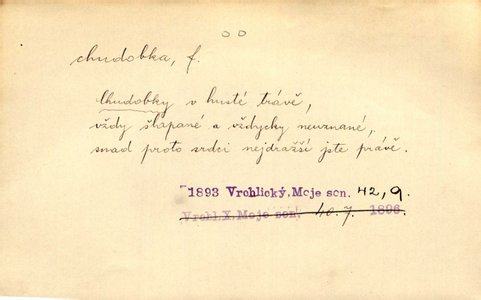 chudobka, f.
Chudobky v husté trávě,
vždy šlapané a vždycky neuznané,
snad proto srdci nejdražší jste právě.
1893 Vrchlický. Moje son. 42, 9.
Vrchl. X. Moje son. 40. 7. 1896.